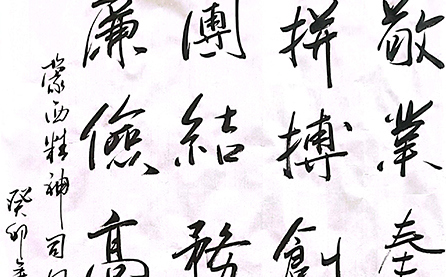 敬業奉
拼搏創
團結務
廉儉高
蒙西精神司
癸卯年